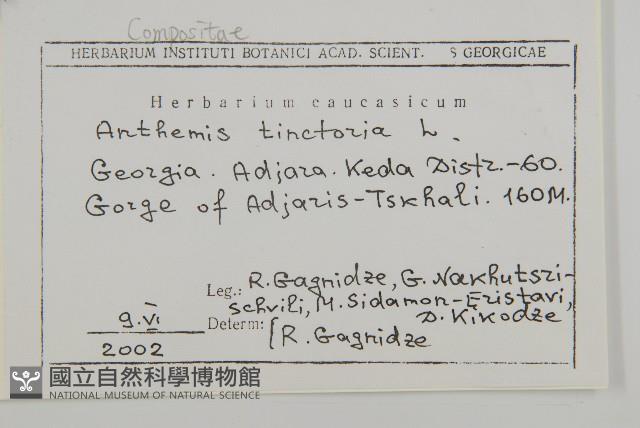 Compositae
HERBARIUM INSTITUTI BOTANICI ACAD. SCIENT. S GEORGICAE
Herbarium caucasicum
Anthemis tinctoria L.
Georgia. Adjara. Keda Distr.-60.
Gorge of Adjaris-Tskhali. 160M.
Leg.: R. Gagnidze, G. Nakhutsri-
schvili, M. Sidamon-Eristavi,
D. Kikodze
9.VI
2002
Determ: R. Gagnidze
國立自然科學博物館
NATIONAL MUSEUM OF NATURAL SCIENCE